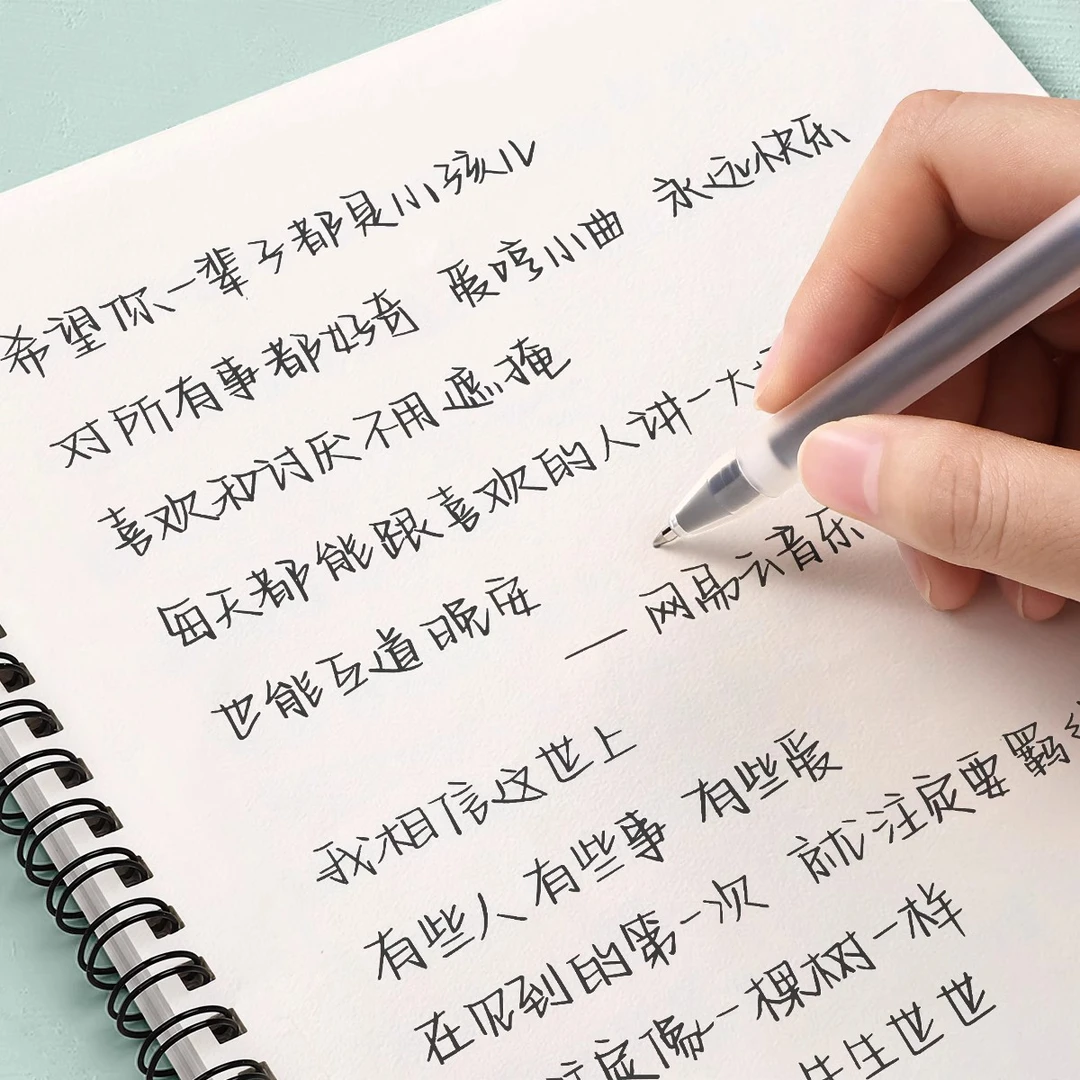 希望你一辈子都是小孩儿
对所有事都好奇 爱哼小曲 永远快乐
喜欢和讨厌不用遮掩
每天都能跟喜欢的人讲一大
也能互道晚安
—— 网易云音乐
我相信这世上
有些人有些事 有些爱
在见到的第一次 就注定要羁
注定像一棵树一样
生生世世